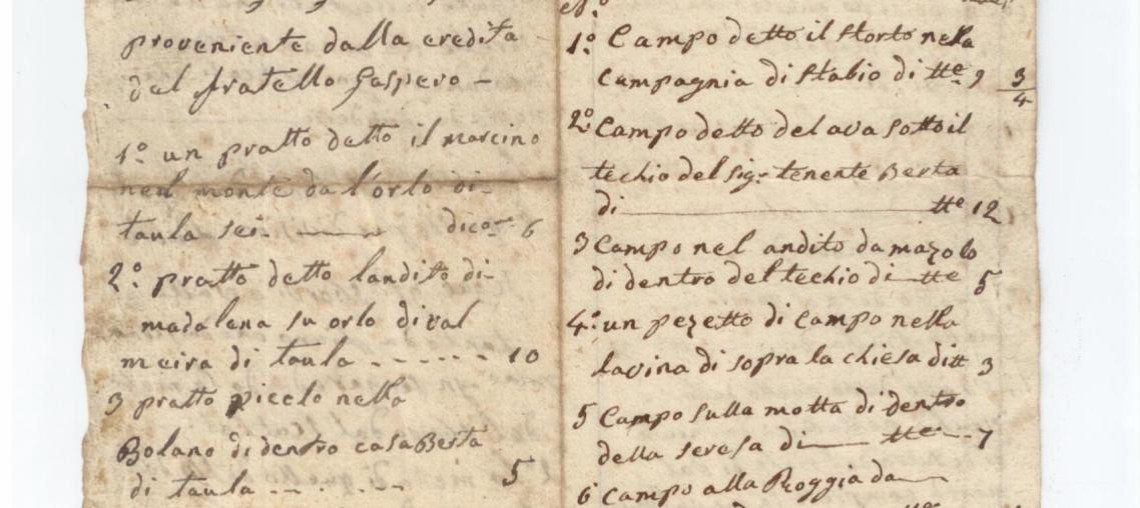 proveniente dalla eredita
del fratello Gaspero -
1º un pratto detto il marcino
nell monte da l'orlo di-
taula sei dico 6
2º. pratto detto landito di-
madalena su orlo di val
maira di taula - - - - - - 10
3 pratto piccolo nella
Bolano di dentro casa Berta
di taula - - . - - 5
1º Campo detto il storto nella
Campagnia di stabio di tte 9 3/4
2º Campo detto del ava sotto il
techio del sigr tenente Berta
di tte 12
3 Campo nel andito da mazolo
di dentro del techio di tte 5
4º un pezetto di Campo nella
lavina di sopra la chiesa di tt 3
5 Campo sulla motta di dentro
della seresa di tte - 7
6 Campo alla Roggia da